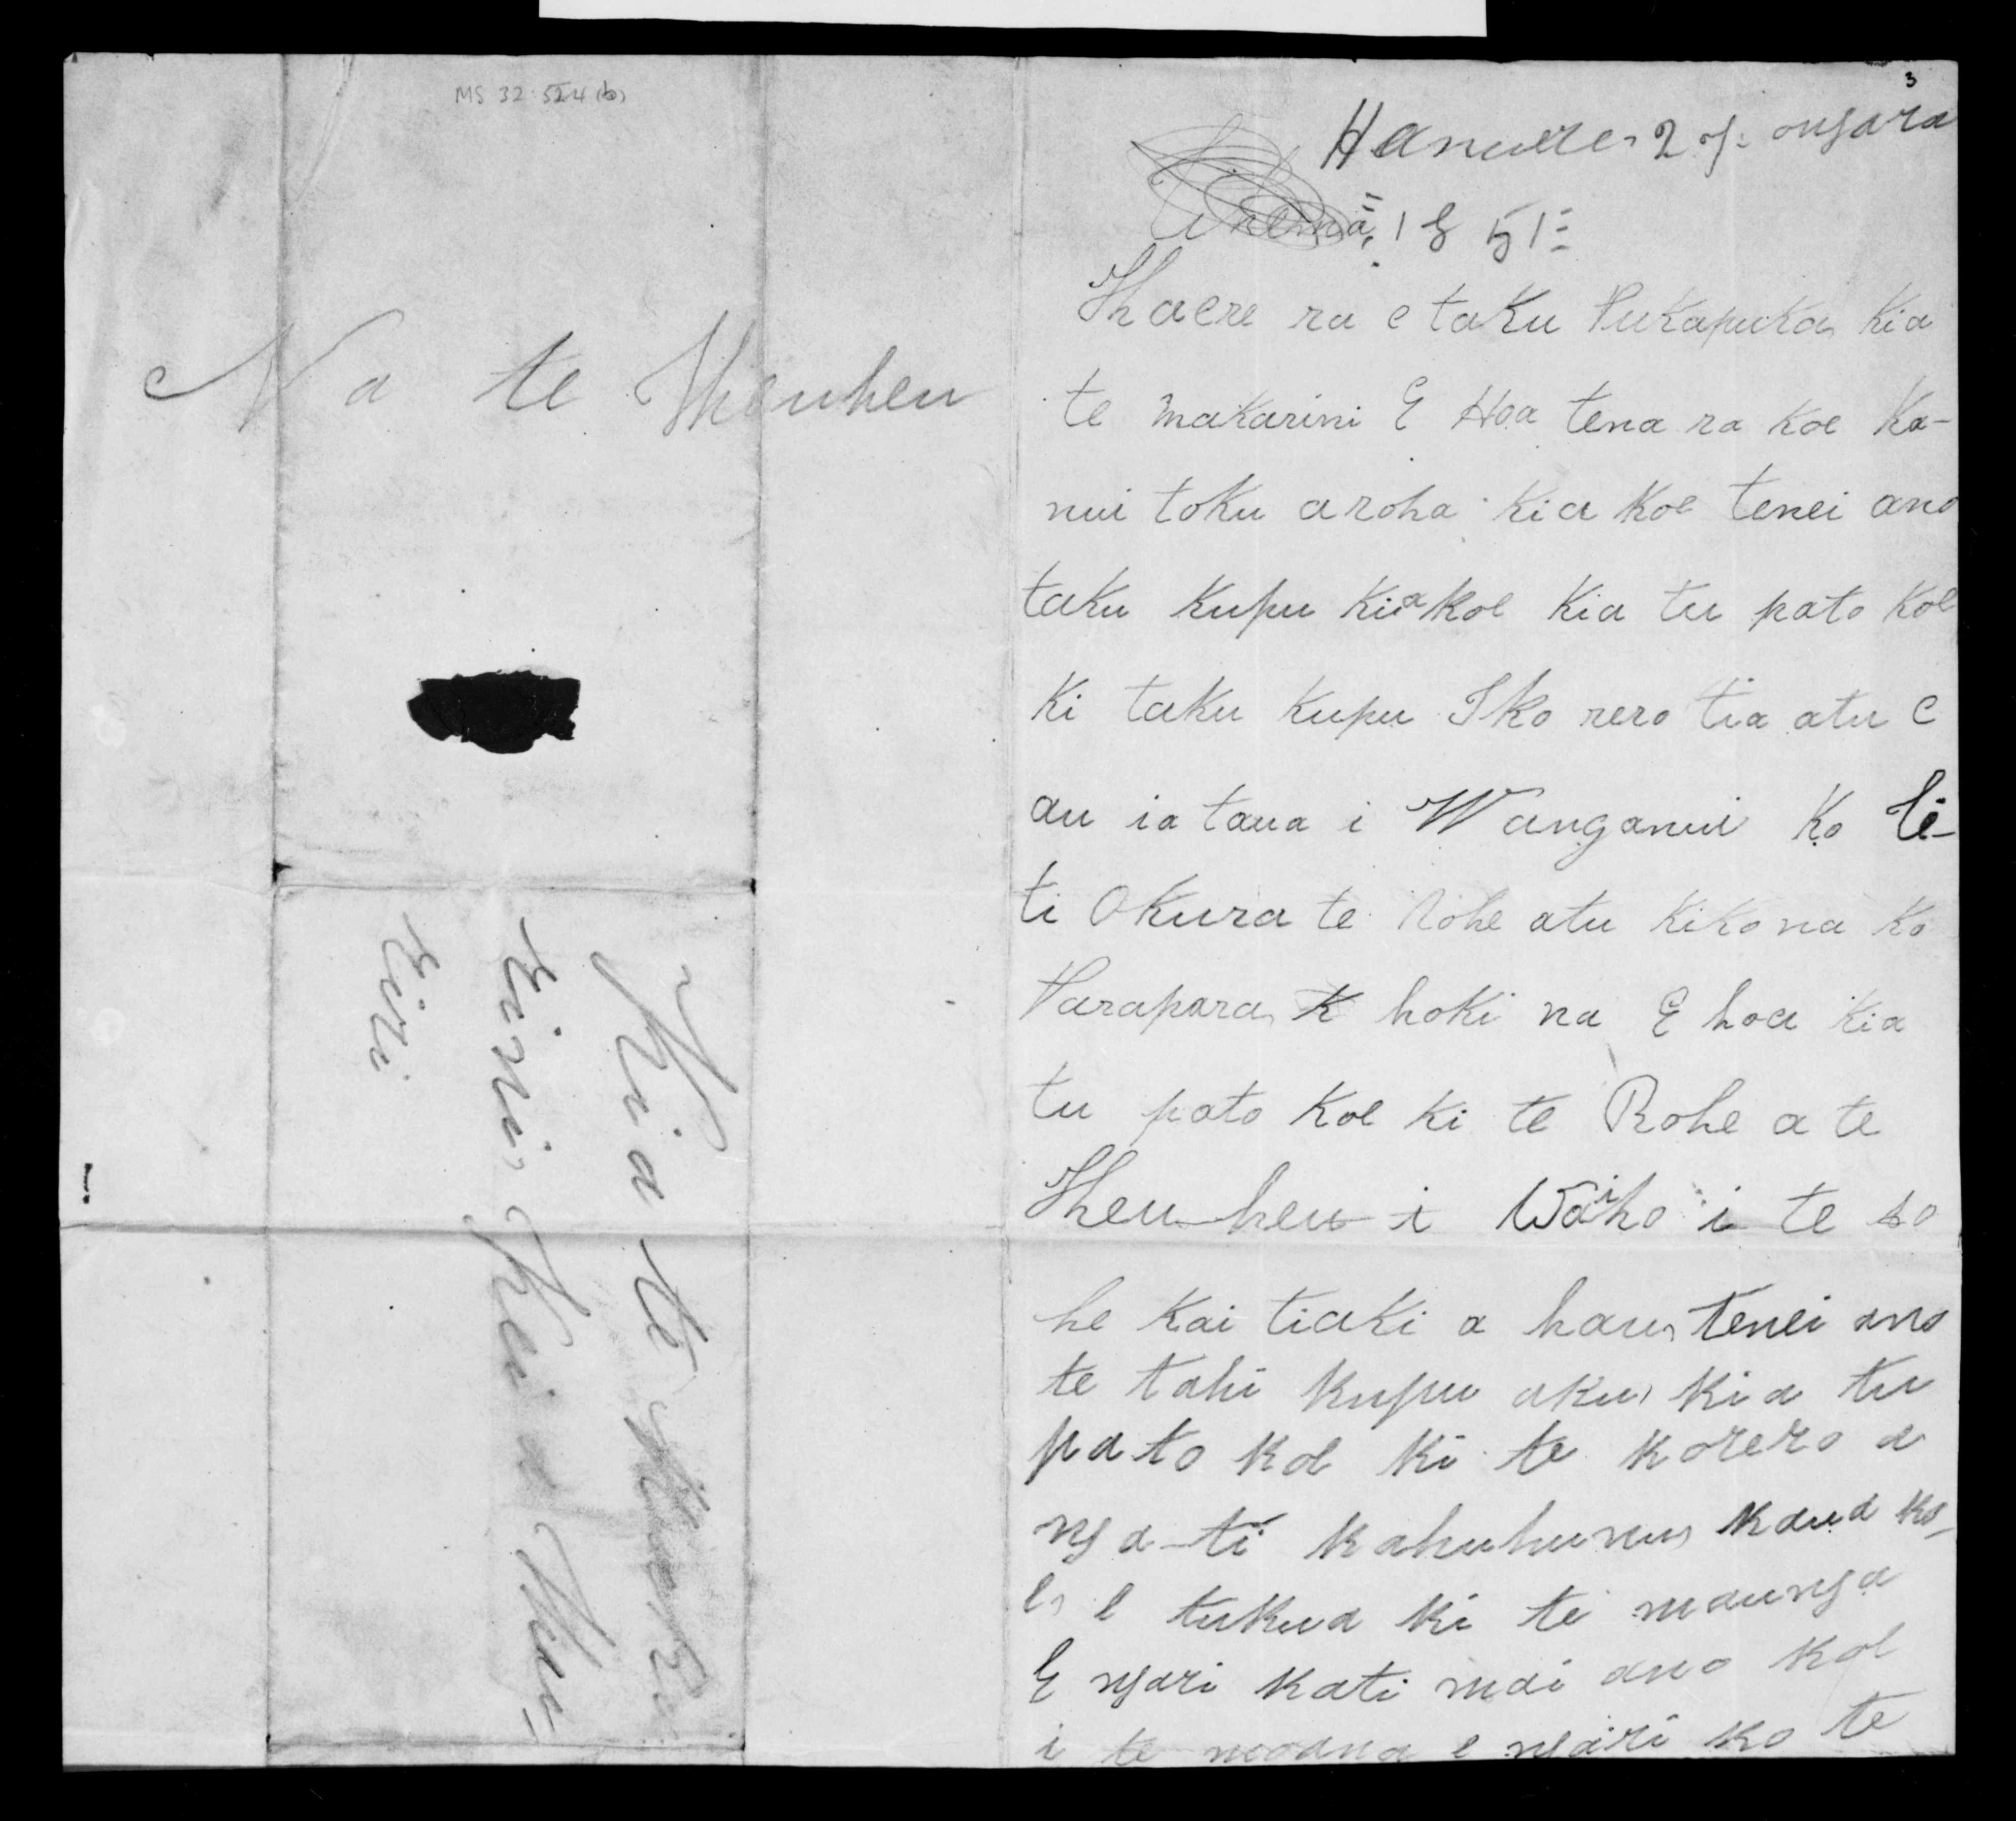 MS 32:524(b)
Na te Heuheu
Kia te Maka
rini Kei a Hu
riri
3
Hanuere, 2 o nga ra
1851
Haere ra e taku Pukapuka kia
te Makarini E Hoa tena ra koe Ka-
nui toku aroha kia koe tenei ano
taku kupu kia koe kia tu pato koe
ki taku kupu I ko rero tia atu e
au ia taua i Wanganui Ko Ti-
ti Okura te Rohe atu kikona ko
Parapara hoki na E hoa kia
tu pato koe ki te Rohe a te
Heu heu i Waiho i te ro
he kai tiaki a hau, tenei ano
te tahi kupu aku, kia tu
pato koe ki te korero a
nga-ti kahuhunu, kaua ko-
e, e tukua ki te maunga
E ngari kati mai ano koe
i te moana e ngari ko te